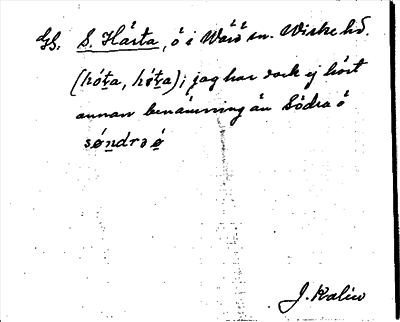 S. Härta, ö i Wärö sn. Wiske hd.
(hó̤ta, hø̤ta); jag har dock ej hört
annan benämning än Södra ö
søndrə ø
J. Kalén